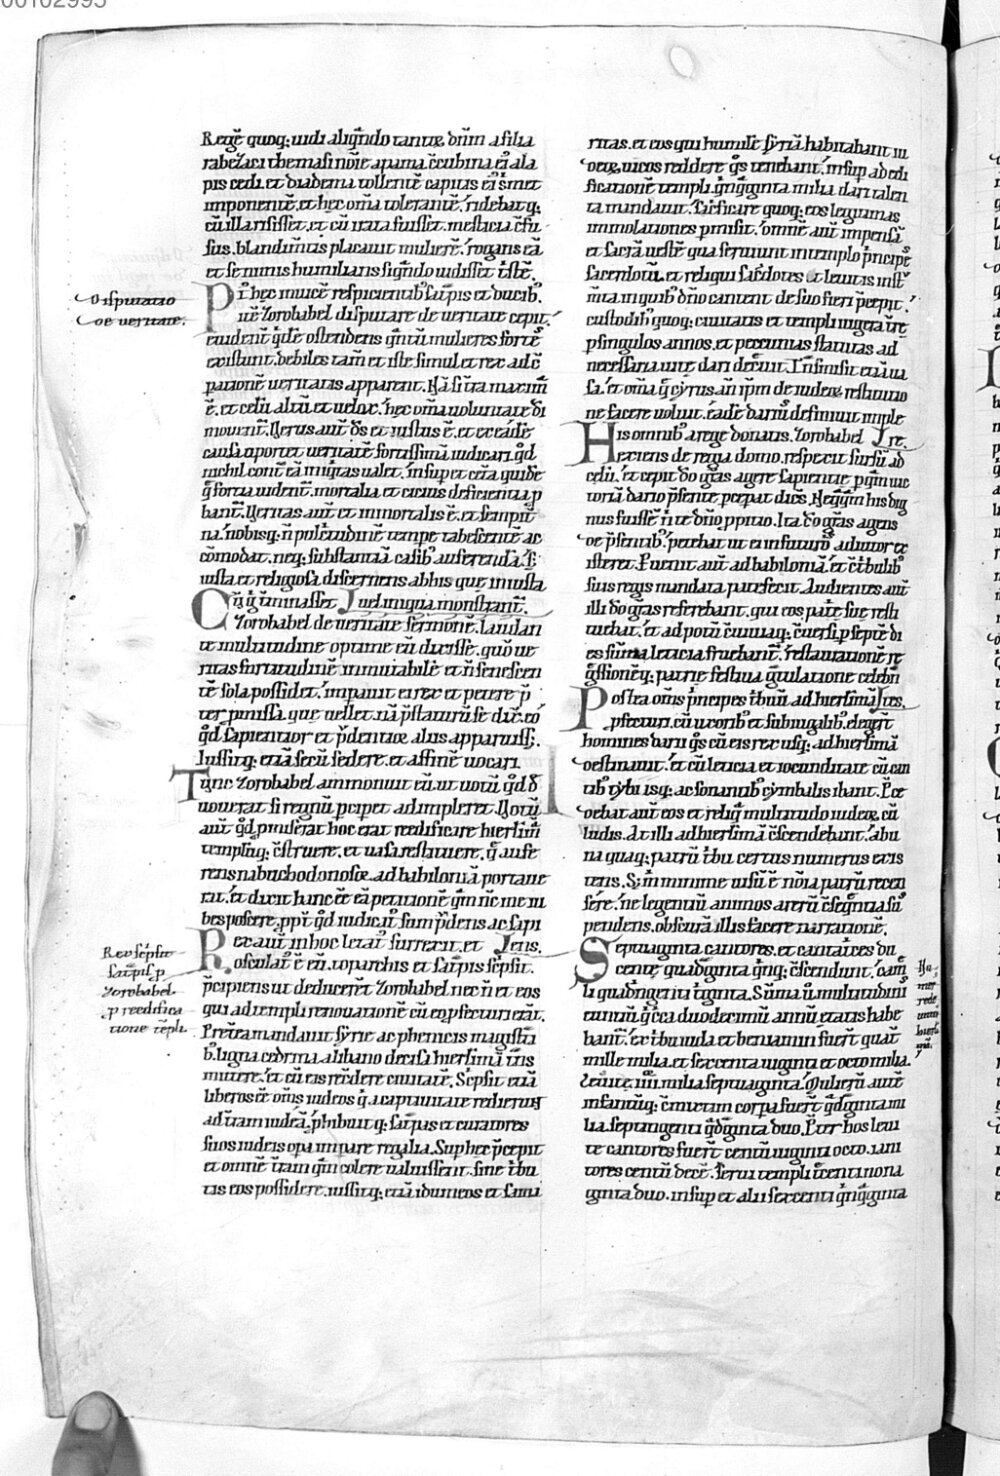 00102995
Regē quoq; uidi aliqn̄do tantuꝫ dn̄m a filia
rabezaci themasi noīe apama c̄cubina ei ala
pis cedi. et diadema tollentē capitis ei s; met
imponentē. et hec om̄a tolerantē. ridebat q;
cū illa risisset. et cū irata fuisset. mesticia c̄fu
sus. blandim̄tis placauit mulierē. rogans eā
et se nimis humilians siqn̄do uidisset tristē.
Disputatio
de ueritate.
Pt hec inuicē respicientib; satr̄pis et ducib;
iuē Zorobabel disputare de ueritate cepit.
euident̄ qidē ostendens qn̄tū mulieres fortē
existunt. debiles tam̄ et iste simul et rex ad c̄
parationē ueritatis apparent. Nā si t̄ra maxim̄
ē. et celū altū et uelox. hec om̄a uoluntate di
mouent̄. Uerus aut̄ d̄s et iustus ē. et ex eadē
causa oportet ueritatē fortissimā iudicari. qd̄
nichil cont̄ eā iniq̄tas ualet. insuper cet̄a quidē
q̄ fortia uident̄. mortalia et cicius deficientia p
bant̄. Ueritas aut̄ et inmortalis ē. et sempit̄
na. nobisq; n̄ pulc̄tudinē tempe tabescentē ac
c̄modat. neq; substantiā casib; auferendā. s;
iusta. et religiosa discernens ab his que iniusta
Cūq; t̄minasset Iuel iniqua monstrant̄.
Zorobabel de ueritate sermonē. laudan
te multitudine optime eū dixisse. quō ue
ritas fortitudinē inmutabilē et n̄ senescen
tē sola possidet. imperauit ei rex et petere p̄
ter pmissa que uellet. nā p̄staturū se dix̄. eo
qd̄ sapientior et p̄dentior aliis apparuiss;.
Iussitq; etiā secū sedere. et affinē uocari.
Tunc Zorobabel ammonuit eū. ut uotū qd̄ d̄o
uouerat si regnū pciperet adimpleret. Uotū
aut̄ qd̄ pmiserat hoc erat reedificare hierl̄m̄
templūq; c̄struere. et uasa restituere. q̄ aufe
rens nabuchodonosor ad babiloniā portaue
rat. et dixit hanc eē eā petitionē qm̄ nc̄ me iu
bes poscere. ppt̄ qd̄ iudicat̄ sum p̄dens ac sapi
Rex sc̄psit
satr̄pis p
Zorobabel
p reedifica
tione tēpli.
Rex aut̄ in hoc letat̄ surrexit. et Iens.
osculat̄ ē eū. toparchis et satr̄pis sc̄psit.
p̄cipiens ut deduceret̄ Zorobabel nec n̄ et eos
qui ad templi renouationē cū eo pfecturi erāt.
Pret̄ea mandauit syrie ac phenicis magist̄ti
b; ligna cedrina a libano decisa hierl̄m̄ t̄ns
mittere. et cū eis rēdere ciuitatē. Sc̄psit etiā
liberos eē om̄s iudeos q; a captiuitate redierunt
ad t̄ram iudeā. phibuitq; satr̄pas et curatores
suos iudeis opa inpare regalia. Sup hec p̄cepit
et omnē t̄ram qm̄ colere ualuissent. sine t̄bu
tis eos possidere. iussitq; etiā idumeos et sama
ritas. et eos qui humilē syriā habitabant iu
deoꝝ uicos reddere qs̄ tenebant. insup ad edi
ficationē templi qn̄q̄ginta milia dari talen
ta mandauit. Sac̄ficare quoq; eos legitimas
immolationes pmisit. omnē aut̄ impensā
et sacrā uestē qua seruiunt in templo p̄ncipes
sacerdotū. et reliqui sac̄dotes et leuitis inst̄
m̄ta in quib; dn̄o canunt de suo fieri p̄cepit.
custodib; quoq; ciuitatis et templi iugera t̄re
p singulos annos. et pecunias statutas ad
necessaria uite dari dec̄uit. Insup misit etiā ua
sa. et om̄a q̄ cyrus añ ip̄m de iudeis restitutio
ne facere uoluit. eadē darius definiuit imple
His omnib; a rege donatis. Zorobabel Ire.
exciens de regia domo. respexit sursū ad
celū. et cepit d̄o gr̄as agere sapientie p qm̄ uic
toriā dario p̄sente perceperat dices. Neq; qm̄ his dig
nus fuissē n̄ te dn̄o ppitio. Ita d̄o gr̄as agens
de p̄sentib; petebat ut ei in futurū adiutor ex
isteret. Puenit aut̄ ad babiloniā. et c̄tbulib;
suis regis mandata patefecit. Audientes aut̄
illi d̄o gr̄as referebant. qui eos pat̄e sue resti
tuebat. et ad potū c̄uiuiaq; c̄uersi. p septē di
es sum̄a leticia fruebant̄. restaurationē re
gssionēq; patrie festiua gt̄ulatione celebn̄
Postea om̄s p̄ncipes t̄buū ad hierl̄imā Ites.
pfecturi. cū uxorib; et subiugalib; elegit̄
homines darii qs̄ cū eis rex usq; ad hierl̄imā
destinauit. et cū leticia et iocunditate cū can
tib; tybiisq; ac sonantib; cymbalis ibant. Pce
debat aut̄ eos et reliq̄ multitudo iudeoꝝ cū
ludis. At illi ad hierl̄imā c̄scendebant. a tbu
na quaq; patrū t̄bu certus numerus exis
tens. S; m̄ minime uisū ē noīa patrū recen
sere. ne legentiū animos a rerū c̄seq̄ntia su
spendens. obscurā illis facere narrationē.
Septuaginta cantores. et cantat̄ces du
cente quadraginta qn̄q; c̄scendunt. oam̄
li quadringenti t̄ginta. Sūma ū multitudinis
euntiū q̄ t̄ca duodecimū annū etatis habe
bant. ex t̄bu iuda et beniamin fuert̄ quat̄
mille milia. et sexcenta uiginti et octo milia.
Leuite. iiii. milia septuaginta. Mulierū aut̄
infantiūq; c̄mixtim corpa fuert̄ qd̄ginta mi
lia septingenti qd̄ginta duo. Pret̄ hos leui
te cantores fuert̄ centū uiginti octo. iani
tores centū decē. Serui templi t̄centi nona
ginta duo. insup et alii sexcenti qn̄q̄ginta